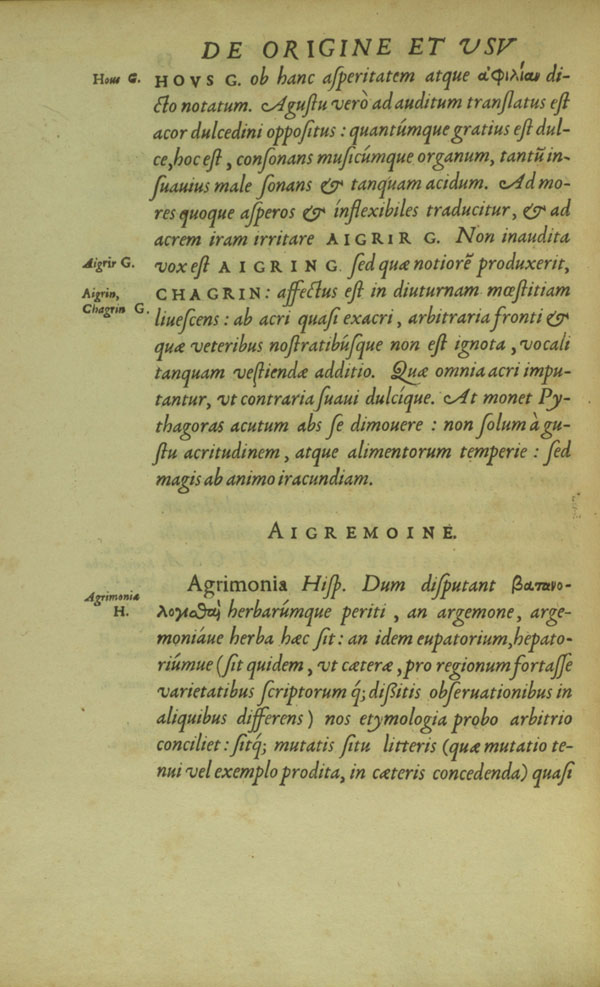 DE ORIGINE ET VSV
Hous G.
HOVS G. ob hanc aſperitatem atque ἀφιλίαν di-
cto notatum. Aguſtu verò ad auditum tranſlatus eſt
acor dulcedini oppoſitus : quantúmque gratius eſt dul-
ce, hoc eſt, conſonans muſicúmque organum, tantũ in-
ſuauius male ſonans & tanquam acidum. Ad mo-
res quoque aſperos & inflexibiles traducitur, & ad
acrem iram irritare AIGRIR G. Non inaudita
Aigrir G.
vox eſt AIGRIN G. ſed quæ notiorẽ produxerit,
Aigrin,
Chagrin G.
CHAGRIN : affectus eſt in diuturnam mœſtitiam
liueſcens : ab acri quaſi exacri, arbitraria fronti &
quæ veteribus noſtratibúſque non eſt ignota, vocali
tanquam veſtiendæ additio. Quæ omnia acri impu-
tantur, vt contraria ſuaui dulcíque. At monet Py-
thagoras acutum abs ſe dimouere : non ſolum à gu-
ſtu acritudinem, atque alimentorum temperie : ſed
magis ab animo iracundiam.
AIGREMOINE.
Agrimonia
H.
Agrimonia Hiſp. Dum diſputant
herbarúmque periti, an argemone, arge-
moniáue herba hæc ſit : an idem eupatorium, hepato-
riúmue (ſit quidem, vt cæteræ, pro regionum fortaſſe
varietatibus ſcriptorum q́; dißitis obſeruationibus in
aliquibus differens) nos etymologia probo arbitrio
conciliet : ſitq́; mutatis ſitu litteris (quæ mutatio te-
nui vel exemplo prodita, in cæteris concedenda) quaſi